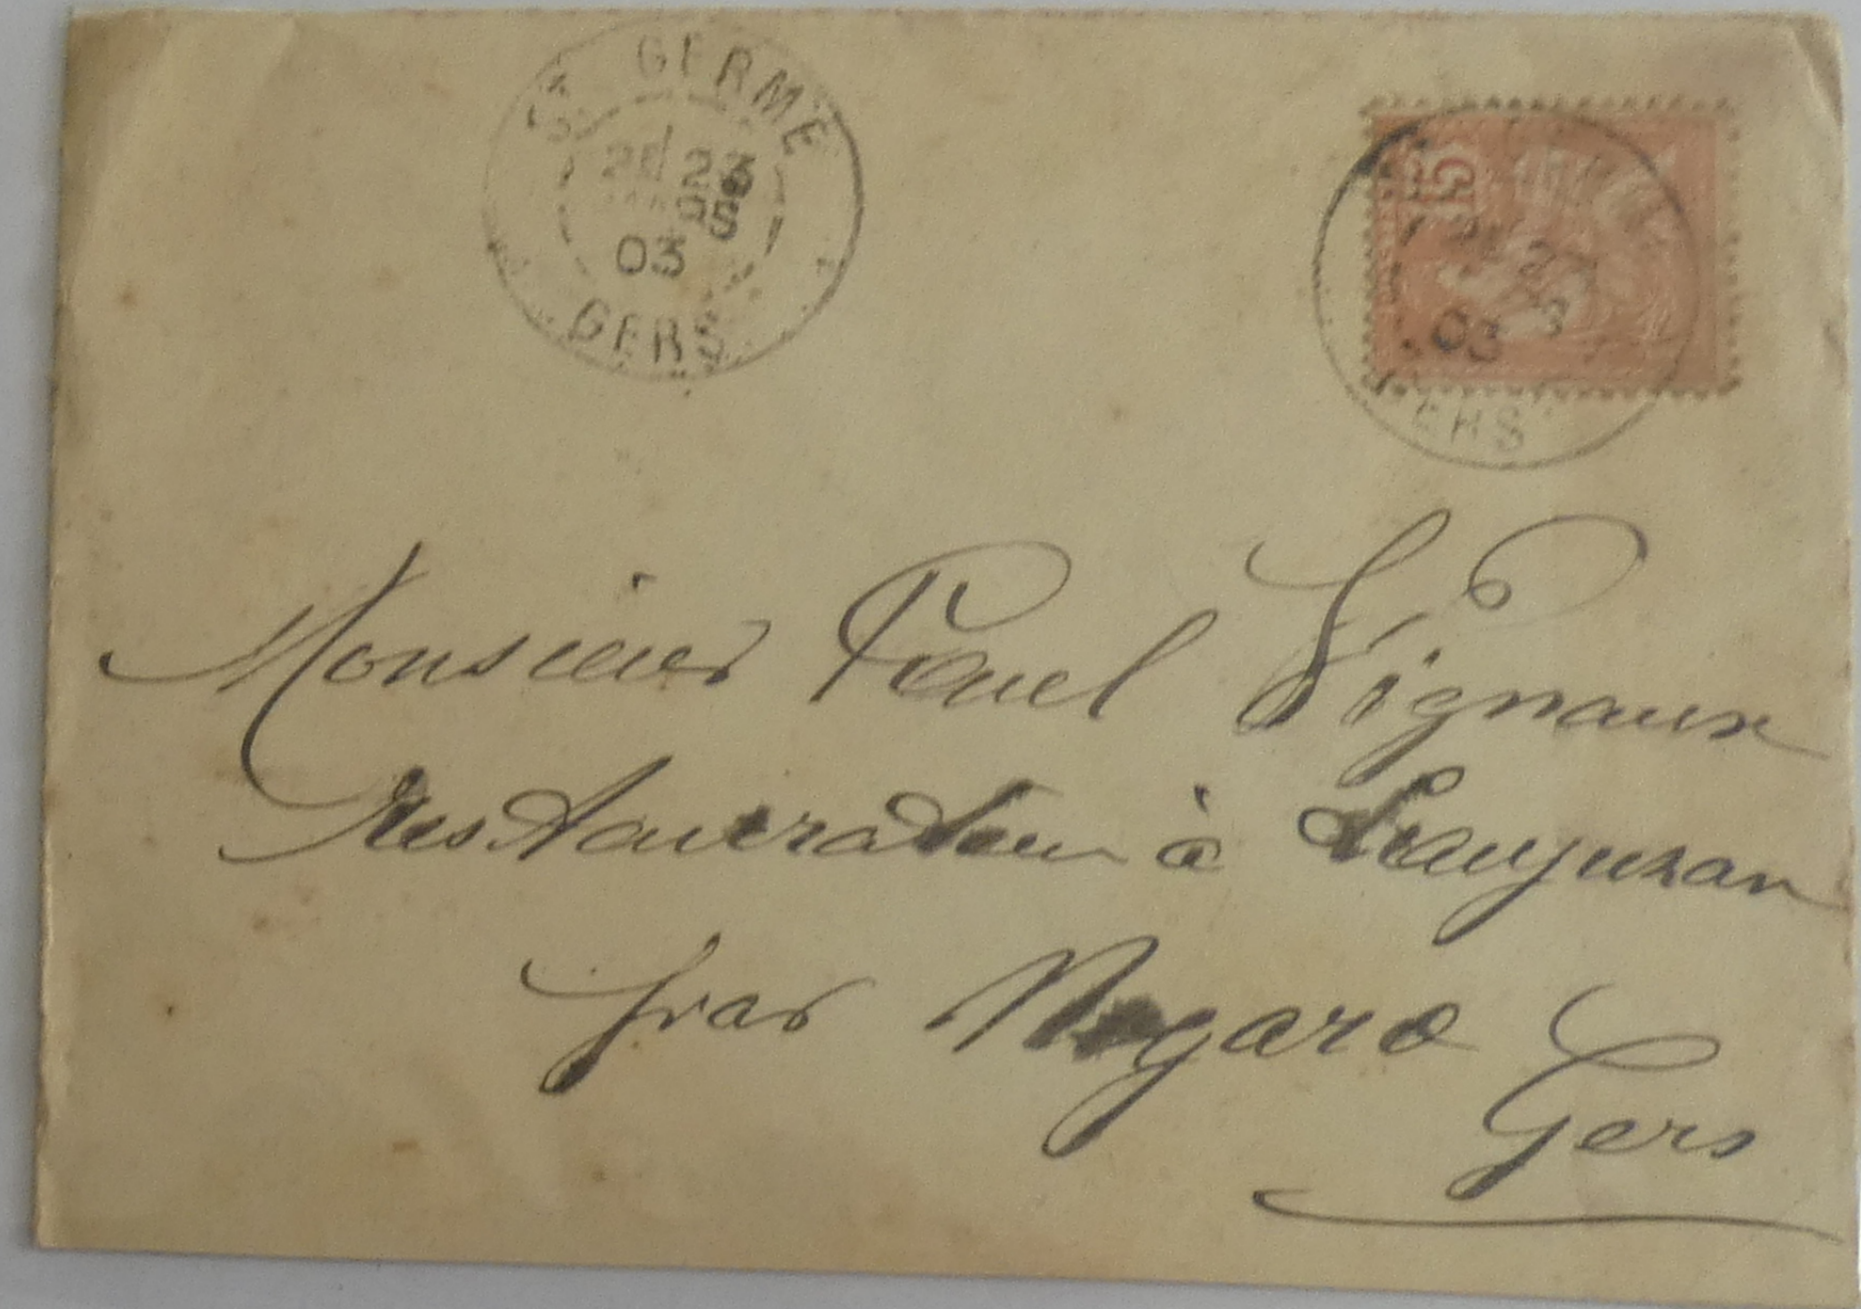 ST GERMÉ
2E 23
03
GERS
15
03
ERS
Monsieur Paul Vignaux
restaurateur à Laujuzan
par Nogaro
Gers